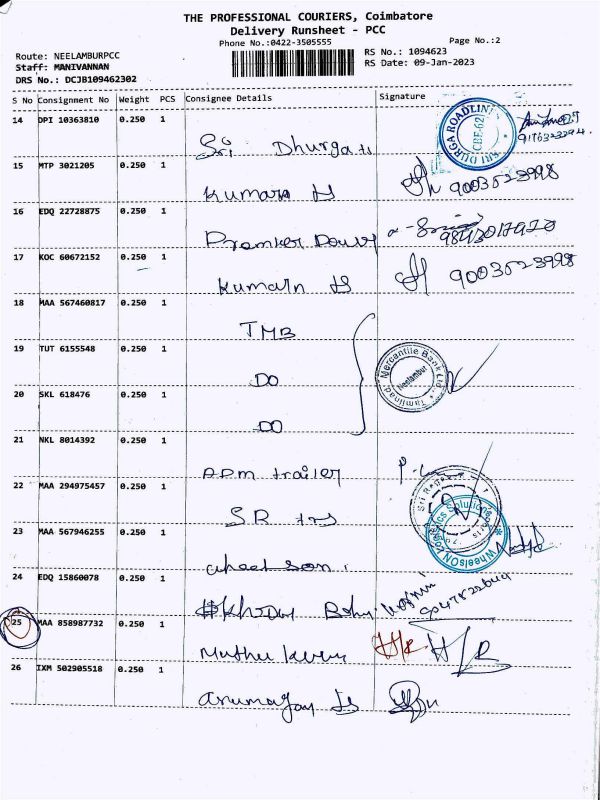 THE PROFESSIONAL COURIERS, Coimbatore
Delivery Runsheet - PCC
Phone No.:0422-3505555
Page No.:2
Route: NEELAMBURPCC
RS No.: 1094623
Staff: MANIVANNAN
RS Date: 09-Jan-2023
DRS No.: DCJB109462302
S No Consignment No Weight PCS Consignee Details Signature
14 DPI 10363810 0.250 1
Sri Dhurga ts
SRI DURGA ROADLINE CBE-62
9176323294
15 MTP 3021205 0.250 1
Kumaran ts 9003523998
16 EDQ 22728875 0.250 1
9843017920
17 KOC 60672152 0.250 1
Kumarn ts 9003523998
18 MAA 567460817 0.250 1
TMB
19 TUT 6155548 0.250 1
DO
Tamilnad Mercantile Bank Ltd., Neelambur
20 SKL 618476 0.250 1
DO
21 NKL 8014392 0.250 1
ADM trailer
22 MAA 294975457 0.250 1
SR trs
23 MAA 567946255 0.250 1
wheel son
WheelsON Logistics Solutions
24 EDQ 15860078 0.250 1
25 MAA 858987732 0.250 1
H/R H/R
26 IXM 502905518 0.250 1
Arumugam ts